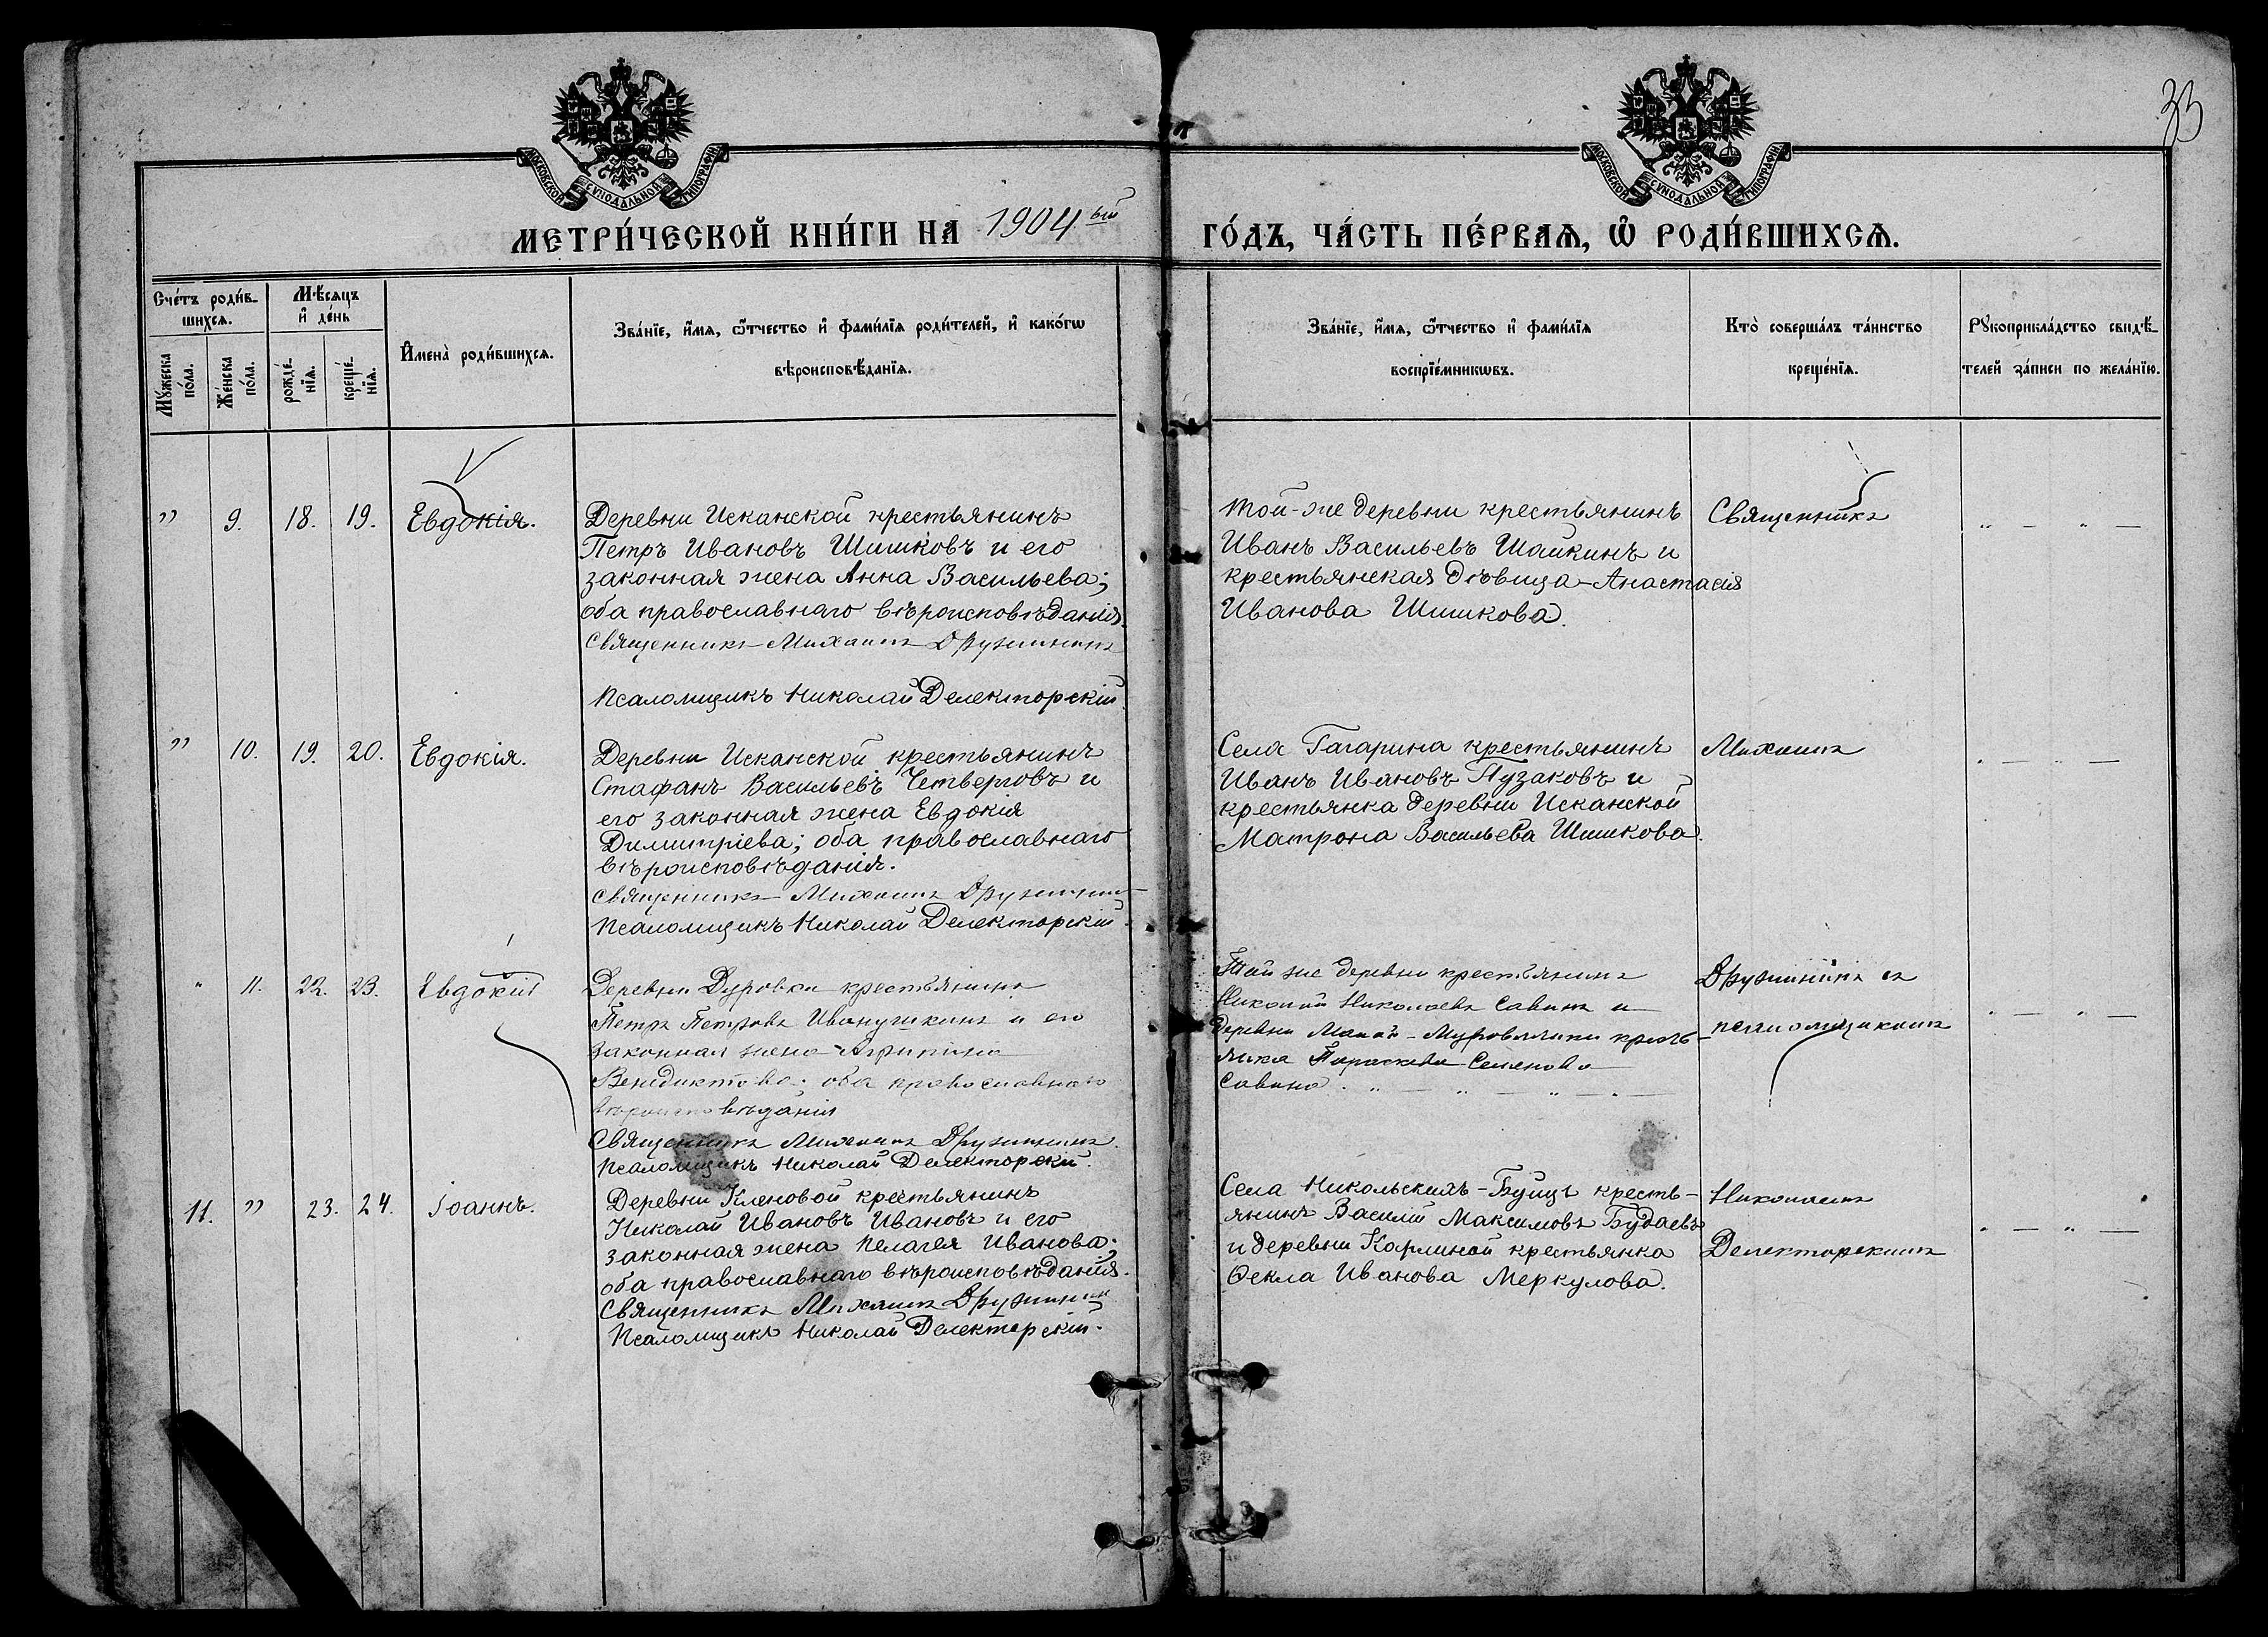 33
МОСКОВСКОЙ СѴНОДАЛЬНОЙ ТИПОГРАФІИ
МОСКОВСКОЙ СѴНОДАЛЬНОЙ ТИПОГРАФІИ
МЕТРИ́ЧЕСКОЙ КНИ́ГИ НА 1904ый
ГО́ДЪ, ЧА́СТЬ ПЕ́РВАѦ, Ѡ РОДИ́ВШИХСѦ.
Сче́тъ роди́в-
шихсѧ.
Мꙋ́жеска по́ла.
Же́нска по́ла.
Мѣ́сѧцъ
и҆ де́нь
рожде́-
нїѧ.
креще́-
нїѧ.
И҆мена̀ роди́вшихсѧ.
Зва́нїе, и҆́мѧ, ѻ҆́тчество и҆ фами́лїѧ роди́телей, и҆ како́гѡ
вѣроисповѣ́данїѧ.
Зва́нїе, и҆́мѧ, ѻ҆́тчество и҆ фами́лїѧ
воспрїе́мникѡвъ.
Кто̀ соверша́лъ та́инство
креще́нїѧ.
Рꙋкоприкла́дство свидѣ́-
телей за́писи по жела́нїю.
" 9. 18. 19. Евдокія.
Деревни Исканской крестьянинъ
Петръ Ивановъ Шишковъ и его
законная жена Анна Васильева;
оба православнаго вѣроисповѣданія.
Священникъ Михаилъ Дружининъ
Псаломщикъ Николай Делекторскій
Той-же деревни крестьянинъ
Иванъ Васильевъ Шашкинъ и
крестьянская дѣвица Анастасія
Иванова Шишкова.
Священникъ
" 10. 19. 20. Евдокія.
Деревни Исканской крестьянинъ
Стафанъ Васильевъ Четверговъ и
его законная жена Евдокія
Димитріева; оба православнаго
вѣроисповѣданія.
Священникъ Михаилъ Дружининъ
Псаломщикъ Николай Делекторскій
Села Гагарина крестьянинъ
Иванъ Ивановъ Пузаковъ и
крестьянка деревни Исканской
Матрона Васильева Шишкова.
Михаилъ
" 11. 22. 23. Евдокія
Деревни Дуровки крестьянинъ
Петръ Петровъ Иванушкинъ и его
законная жена Агрипина
Венедиктова; оба православнаго
вѣроисповѣданія
Священникъ Михаилъ Дружининъ.
Псаломщикъ Николай Делекторскій.
Той же деревни крестьянинъ
Николай Николаевъ Савинъ и
деревни Муровлянки кресть-
янка Параскева Семенова
Савина.
Дружининъ съ
псаломщикомъ
11. " 23. 24. Іоаннъ.
Деревни Кленовой крестьянинъ
Николай Ивановъ Ивановъ и его
законная жена Пелагея Иванова;
оба православнаго вѣроисповѣданія.
Священникъ Михаилъ Дружининъ
Псаломщикъ Николай Делекторскій.
Села Никольскихъ-Буицъ кресть-
янинъ Василій Максимовъ Будаевъ
и деревни Карлиной крестьянка
Ѳекла Иванова Меркулова.
Николаемъ
Делекторскимъ